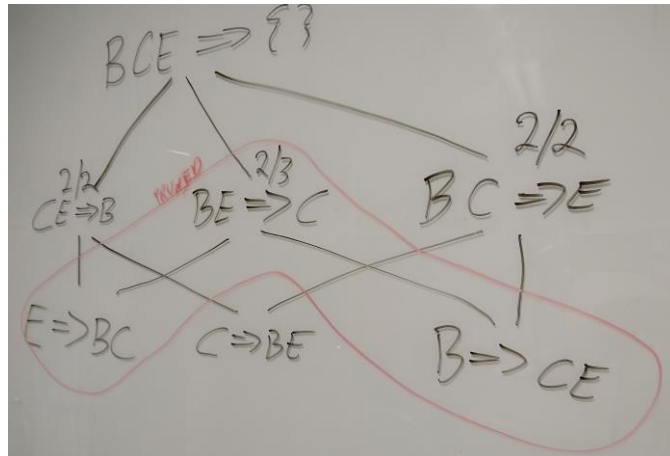 BCE => {}
2/2
CE => B
PRUNED
2/3
BE => C
2/2
BC => E
E => BC
C => BE
B => CE